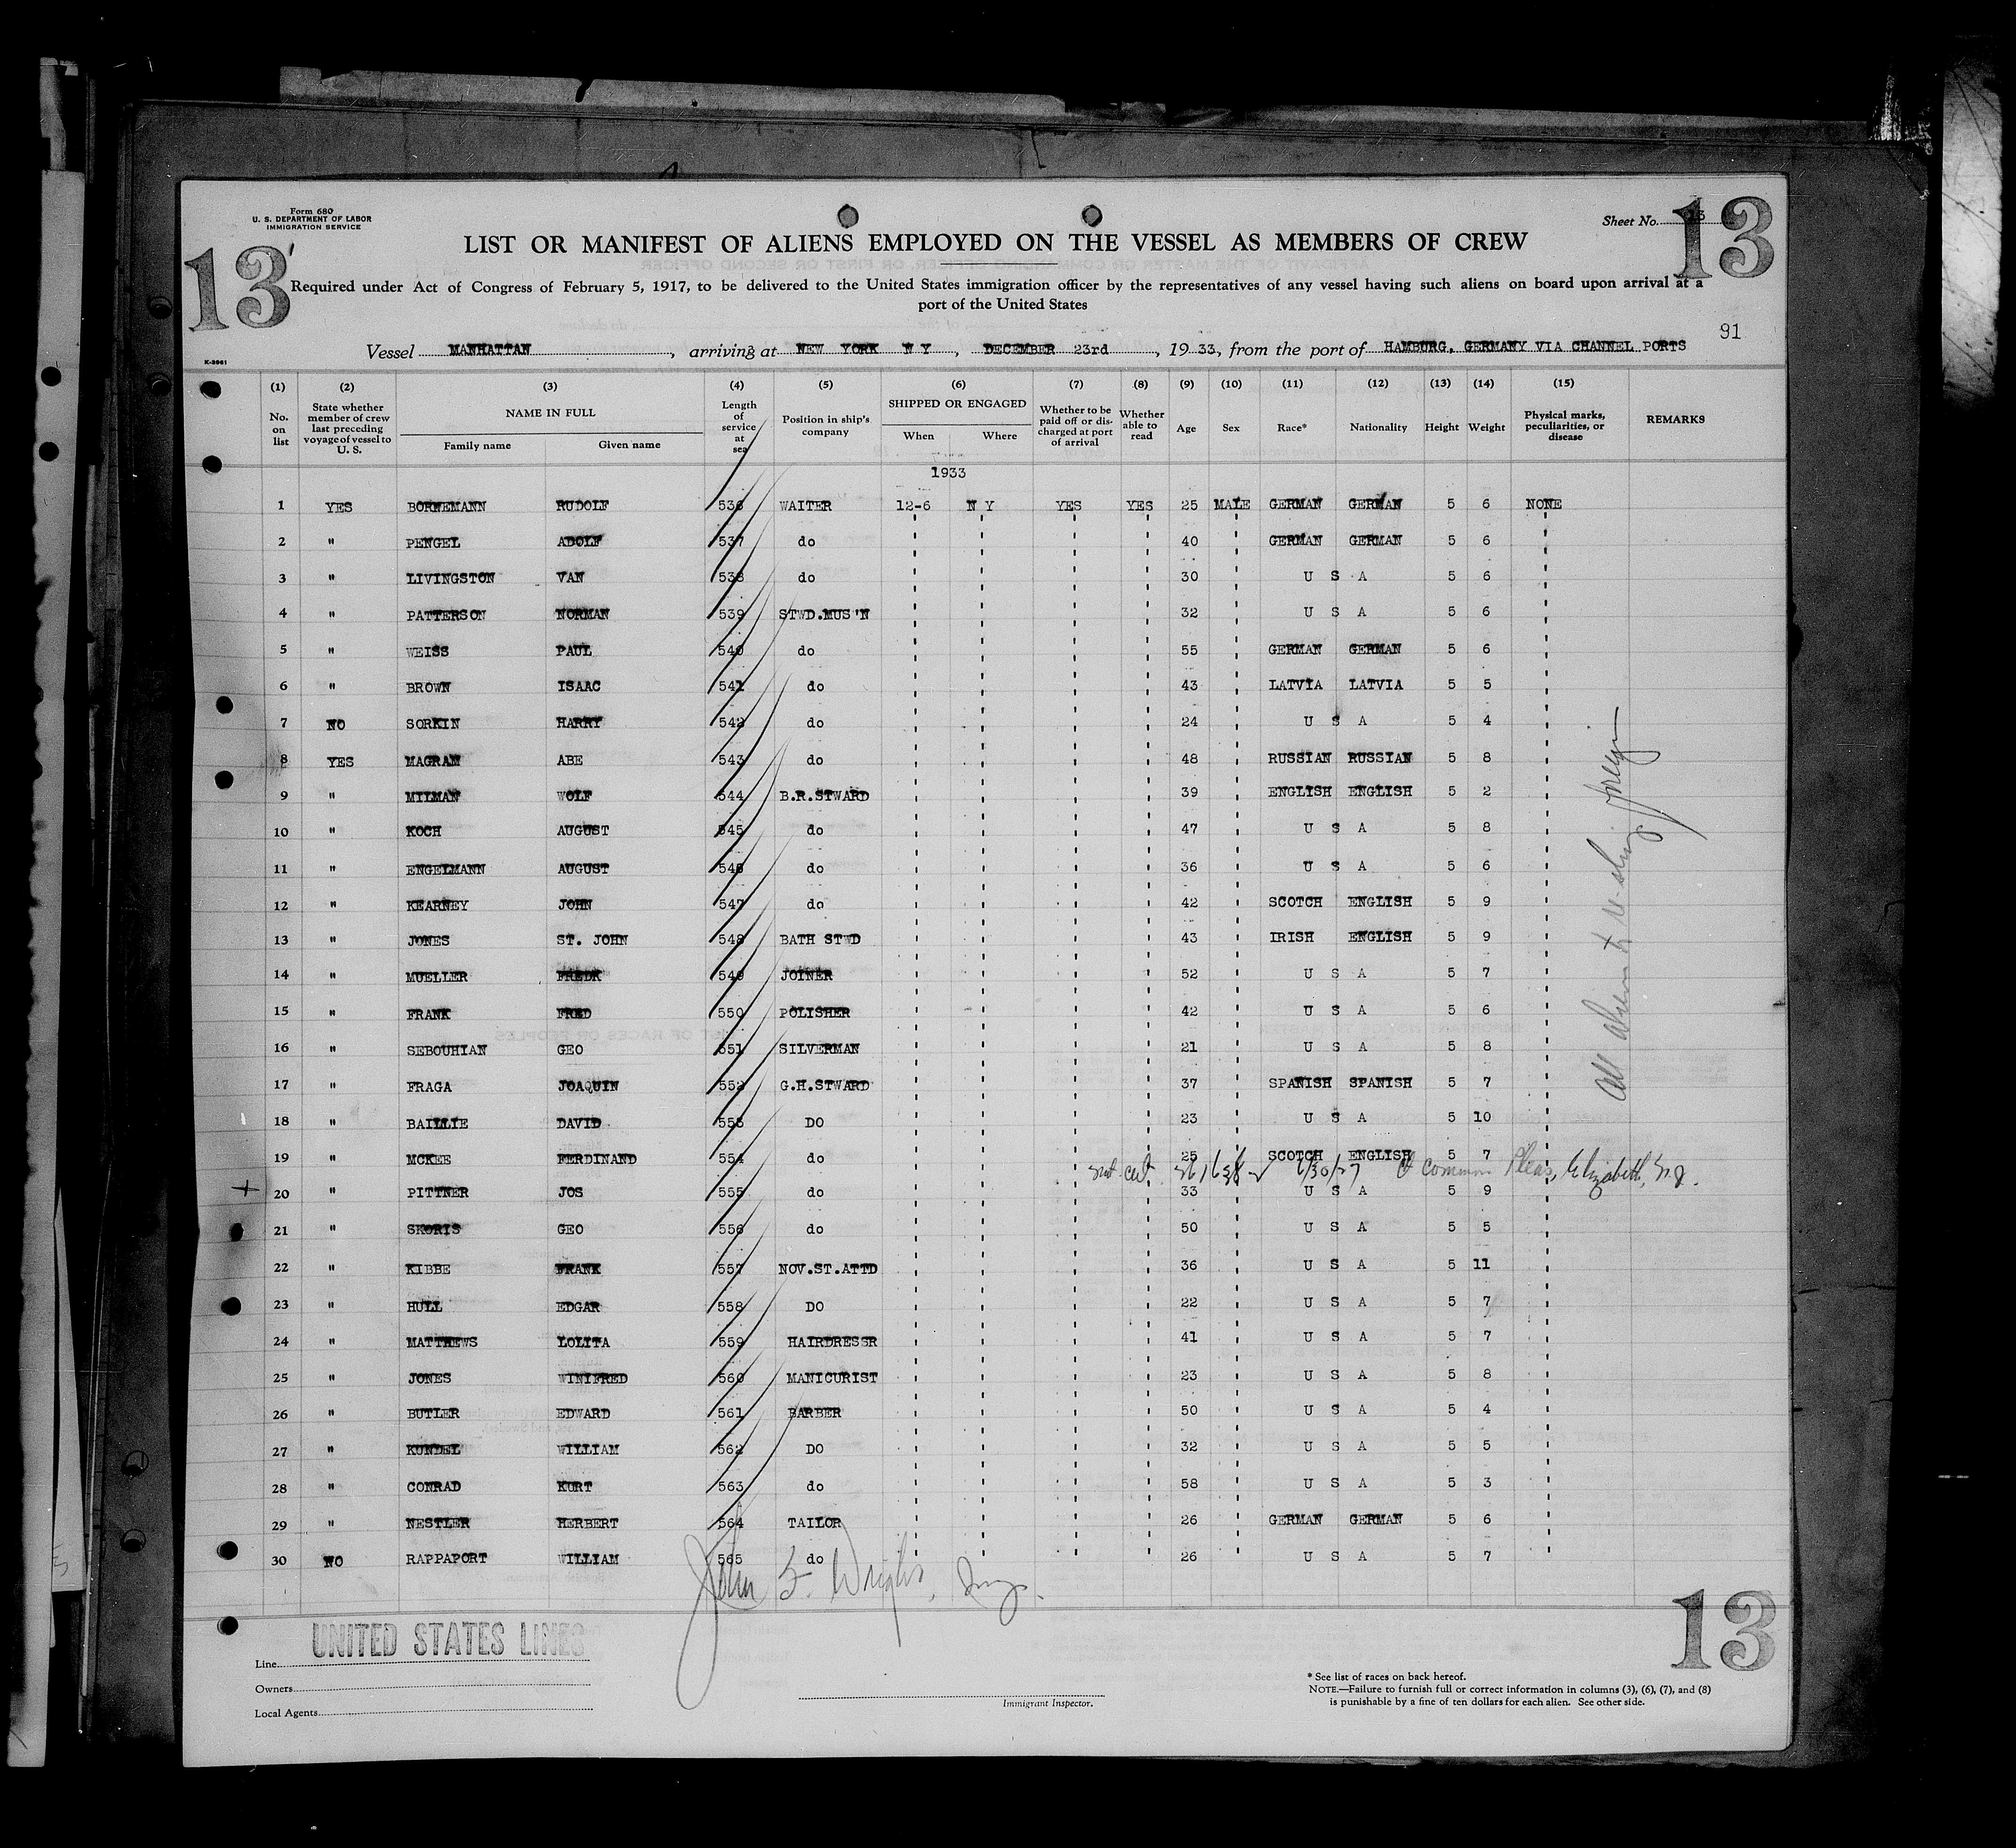 Form 680
U. S. DEPARTMENT OF LABOR
IMMIGRATION SERVICE
Sheet No. 13
13
13
LIST OR MANIFEST OF ALIENS EMPLOYED ON THE VESSEL AS MEMBERS OF CREW
Required under Act of Congress of February 5, 1917, to be delivered to the United States immigration officer by the representatives of any vessel having such aliens on board upon arrival at a
port of the United States
91
K-3961
Vessel MANHATTAN, arriving at NEW YORK N Y, DECEMBER 23rd, 1933, from the port of HAMBURG, GERMANY VIA CHANNEL PORTS
(1) (2) (3) (4) (5) (6) (7) (8) (9) (10) (11) (12) (13) (14) (15)
No. on list | State whether member of crew last preceding voyage of vessel to U. S. | NAME IN FULL Family name Given name | Length of service at sea | Position in ship's company | SHIPPED OR ENGAGED When Where | Whether to be paid off or discharged at port of arrival | Whether able to read | Age | Sex | Race* | Nationality | Height | Weight | Physical marks, peculiarities, or disease | REMARKS
1933
1 YES BORNEMANN RUDOLF 536 WAITER 12-6 N Y YES YES 25 MALE GERMAN GERMAN 5 6 NONE
2 " PENGEL ADOLF 537 do 40 GERMAN GERMAN 5 6
3 " LIVINGSTON VAN 538 do 30 U S A 5 6
4 " PATTERSON NORMAN 539 STWD.MUS'N 32 U S A 5 6
5 " WEISS PAUL 540 do 55 GERMAN GERMAN 5 6
6 " BROWN ISAAC 541 do 43 LATVIA LATVIA 5 5
7 NO SORKIN HARRY 542 do 24 U S A 5 4
8 YES MAGRAM ABE 543 do 48 RUSSIAN RUSSIAN 5 8
9 " MILMAN WOLF 544 B.R.STWARD 39 ENGLISH ENGLISH 5 2
10 " KOCH AUGUST 545 do 47 U S A 5 8
11 " ENGELMANN AUGUST 546 do 36 U S A 5 6
12 " KEARNEY JOHN 547 do 42 SCOTCH ENGLISH 5 9
13 " JONES ST. JOHN 548 BATH STWD 43 IRISH ENGLISH 5 9
14 " MUELLER FREDK 549 JOINER 52 U S A 5 7
15 " FRANK FRED 550 POLISHER 42 U S A 5 6
16 " SEBOUHIAN GEO 551 SILVERMAN 21 U S A 5 8
17 " FRAGA JOAQUIN 552 G.H.STWARD 37 SPANISH SPANISH 5 7
18 " BAILLIE DAVID 553 DO 23 U S A 5 10
19 " MCKEE FERDINAND 554 do 25 SCOTCH ENGLISH 5 7
6/30/27 Ct common Pleas, Elizabeth, N.J.
20 " PITTNER JOS 555 do 33 U S A 5 9
21 " SKORIS GEO 556 do 50 U S A 5 5
22 " KIBBE FRANK 557 NOV.ST.ATTD 36 U S A 5 11
23 " HULL EDGAR 558 DO 22 U S A 5 7
24 " MATTHEWS LOLITA 559 HAIRDRESSR 41 U S A 5 7
25 " JONES WINIFRED 560 MANICURIST 23 U S A 5 8
26 " BUTLER EDWARD 561 BARBER 50 U S A 5 4
27 " KUNDEL WILLIAM 562 DO 32 U S A 5 5
28 " CONRAD KURT 563 do 58 U S A 5 3
29 " NESTLER HERBERT 564 TAILOR 26 GERMAN GERMAN 5 6
30 NO RAPPAPORT WILLIAM 565 do 26 U S A 5 7
All aliens to re-ship foreign
John F. Wright, Insp.
13
Line UNITED STATES LINES
Owners
Local Agents
Immigrant Inspector.
* See list of races on back hereof.
NOTE.—Failure to furnish full or correct information in columns (3), (6), (7), and (8)
is punishable by a fine of ten dollars for each alien. See other side.